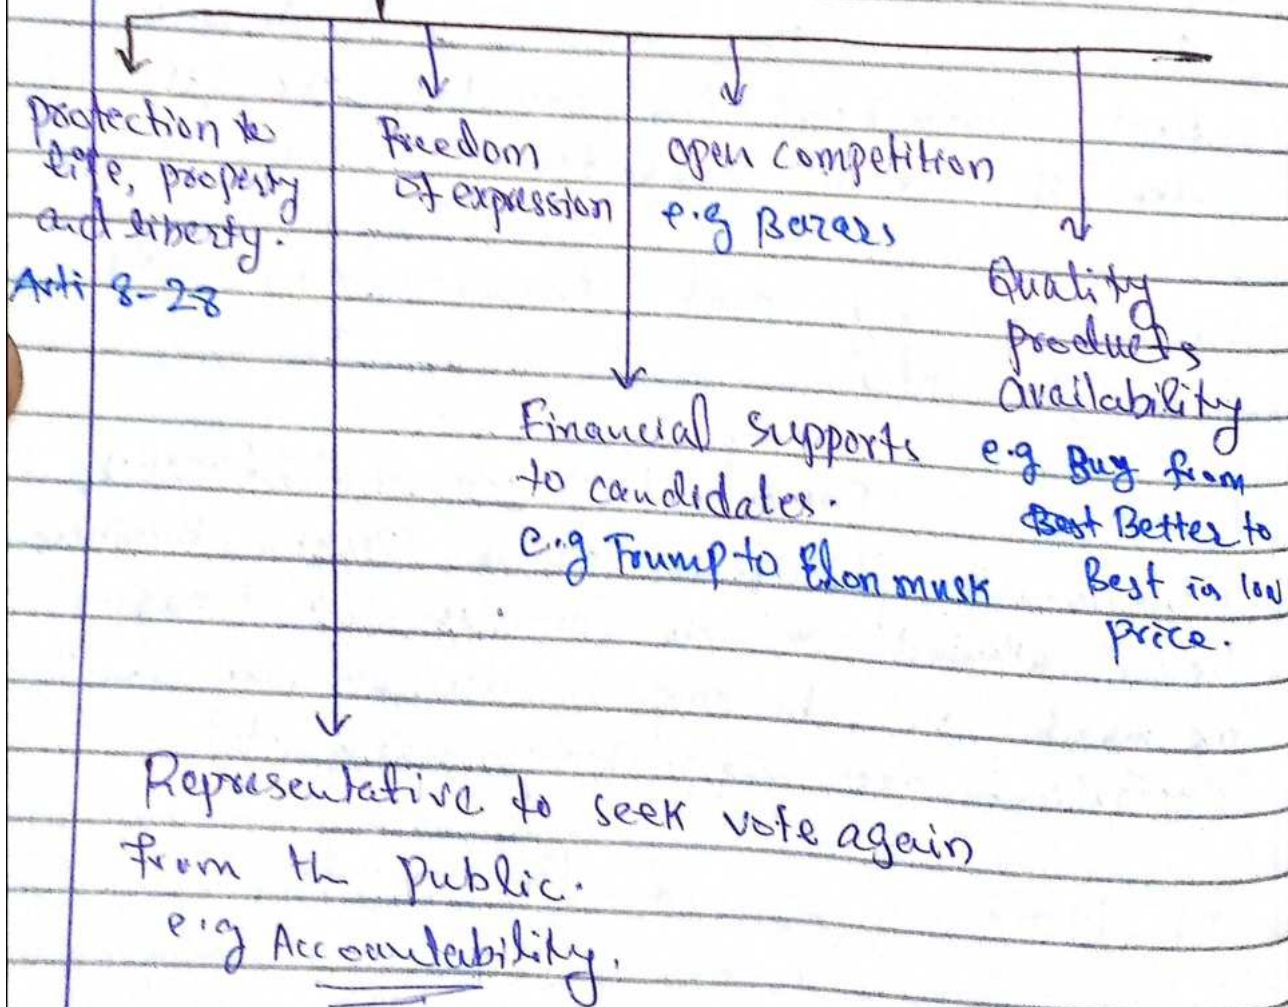 protection to
life, property
and liberty.
Arti 8-28
Freedom
of expression
open competition
e.g Bazars
Quality
products
availability
e.g Buy from
Better to
Best in low
price.
Financial supports
to candidates.
e.g Trump to Elon musk
Representative to seek vote again
from th public.
e.g Accountability.